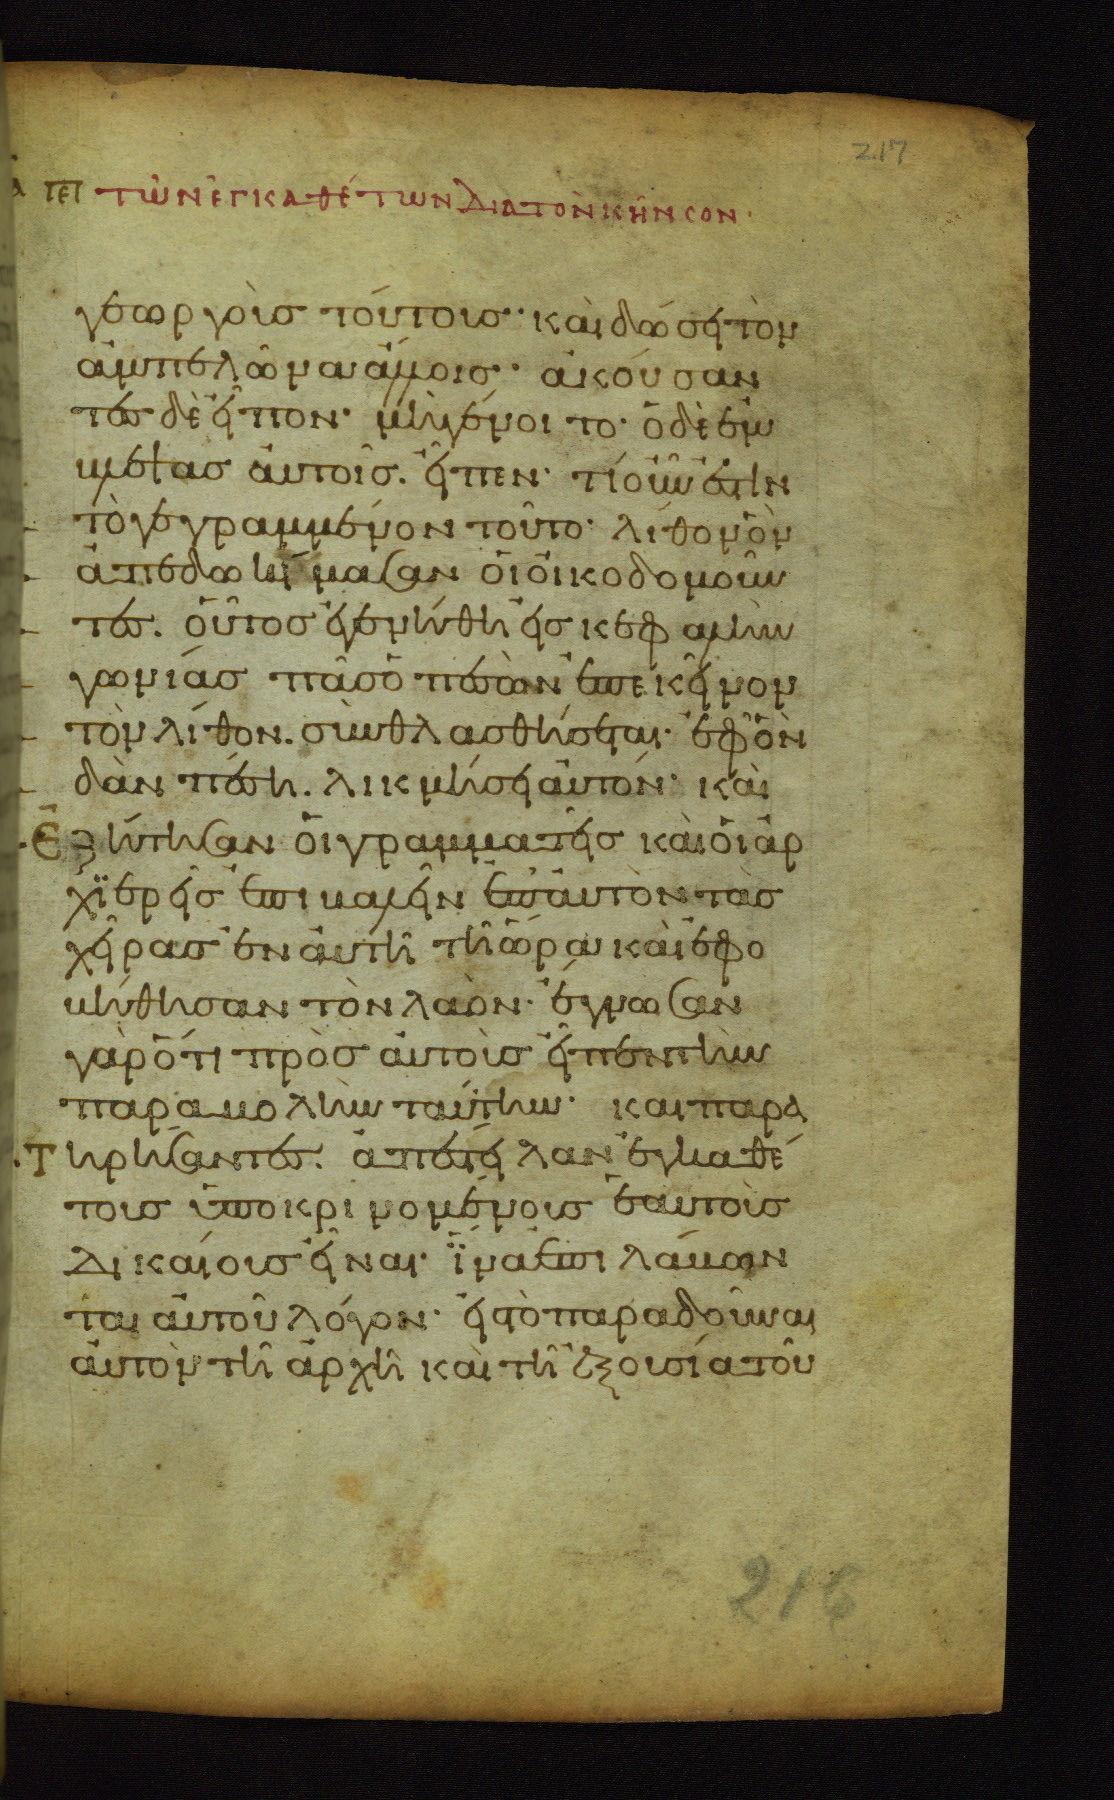 217
περὶ τῶν ἐγκαθέτων διὰ τὸν κῆνσον·
γεωργοὺς τούτους· καὶ δώσει τὸν
ἀμπελῶνα ἄλλοις· ἀκούσαν
τες δὲ εἶπον· μὴ γένοιτο· ὁ δὲ ἐμ
βλέψας αὐτοῖς. εἶπεν· τί οὖν ἐστὶν
τὸ γεγραμμένον τοῦτο· λίθον ὃν
ἀπεδοκίμασαν οἱ οἰκοδομοῦν
τες. οὗτος ἐγενήθη εἰς κεφαλὴν
γωνίας πᾶς ὁ πεσὼν ἐπ' ἐκεῖνον
τὸν λίθον. συνθλασθήσεται· ἐφ' ὃν
δ' ἂν πέση. λικμήσει αὐτόν· καὶ
Ἐζήτησαν οἱ γραμματεῖς καὶ οἱ ἀρ
χϊερεῖς ἐπιβαλεῖν ἐπ' αὐτὸν τὰς
χεῖρας ἐν αὐτῆ τῆ ὥρα καὶ ἐφο
βήθησαν τὸν λαὸν· ἔγνωσαν
γὰρ ὅτι πρὸς αὐτοὺς εἶπεν τὴν
παραβολὴν ταύτην· και παρα
Τηρήσαντες. ἀπέστειλαν ἐγκαθέ
τους ὑποκρινομένους ἑαυτοὺς
δικαίους εἶναι· ἵνα ἐπιλάβων
ται αὐτοῦ λόγον· εἰς τὸ παραδοῦναι
αὐτὸν τῆ ἀρχῆ καὶ τῆ ἐξουσία τοῦ
216